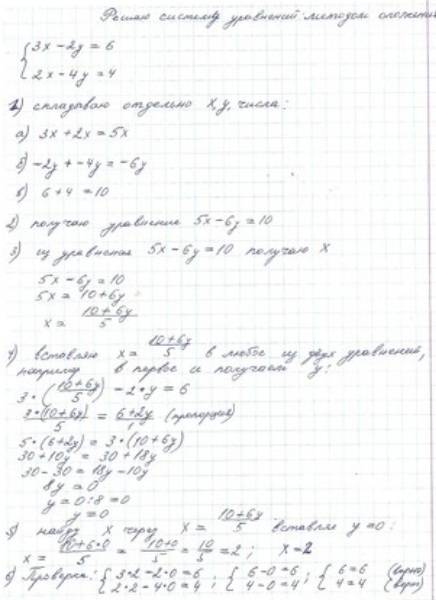 Решаю систему уравнений методом сложения
{ 3x - 2y = 6
2x - 4y = 4
1) складываю отдельно x, y, числа:
а) 3x + 2x = 5x
б) -2y + -4y = -6y
в) 6 + 4 = 10
2) получаю уравнение 5x - 6y = 10
3) из уравнения 5x - 6y = 10 получаю x
5x - 6y = 10
5x = 10 + 6y
x = (10 + 6y)/5
4) вставляю x = (10 + 6y)/5 в любое из двух уравнений,
например в первое и получаем y:
3 • ((10 + 6y)/5) - 2 • y = 6
3 • (10 + 6y)/5 = (6 + 2y)/1 (пропорция)
5 • (6 + 2y) = 3 • (10 + 6y)
30 + 10y = 30 + 18y
30 - 30 = 18y - 10y
8y = 0
y = 0 : 8 = 0
y = 0
5) найду x через x = (10 + 6y)/5 вставляя y = 0:
x = (10 + 6 • 0)/5 = (10 + 0)/5 = 10/5 = 2; x = 2
6) Проверка: { 3•2 - 2•0 = 6 ; { 6 - 0 = 6 ; { 6 = 6 (верно)
2•2 - 4•0 = 4 ; 4 - 0 = 4 ; 4 = 4 (верно)